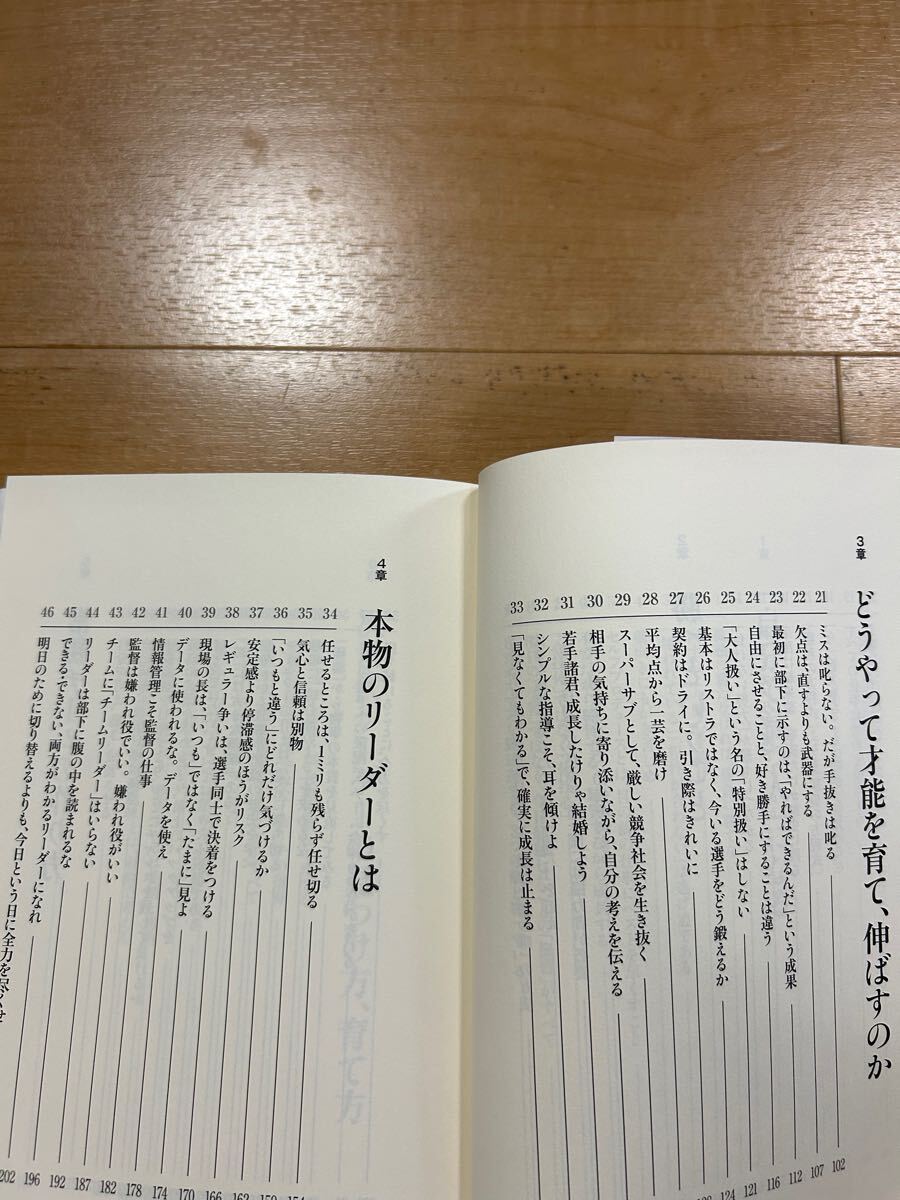 3章
どうやって才能を育て、伸ばすのか
21 ミスは叱らない。だが手抜きは叱る 102
22 欠点は、直すよりも武器にする 107
23 最初に部下に示すのは、「やればできるんだ」という成果 112
24 自由にさせることと、好き勝手にすることは違う 116
25 「大人扱い」という名の「特別扱い」はしない 121
26 基本はリストラではなく、今いる選手をどう鍛えるか 124
27 契約はドライに。引き際はきれいに
28 平均点から「一芸を磨け
29 スーパーサブとして、厳しい競争社会を生き抜く
30 相手の気持ちに寄り添いながら、自分の考えを伝える
31 若手諸君、成長したけりゃ結婚しよう
32 シンプルな指導こそ、耳を傾けよ
33 「見なくてもわかる」で、確実に成長は止まる
4章
本物のリーダーとは
34 任せるところは、1ミリも残らず任せ切る
35 気心と信頼は別物
36 「いつもと違う」にどれだけ気づけるか
37 安定感より停滞感のほうがリスク
38 レギュラー争いは、選手同士で決着をつける
39 現場の長は、「いつも」ではなく「たまに」見よ
40 データに使われるな。データを使え
41 情報管理こそ監督の仕事
42 監督は嫌われ役でいい。嫌われ役がいい
43 チームに「チームリーダー」はいらない
44 リーダーは部下に腹の中を読まれるな
45 できる・できない、両方がわかるリーダーになれ
46 明日のために切り替えるよりも、今日という日に全力を尽くせ
162
166
170
174
178
182
187
192
196
202